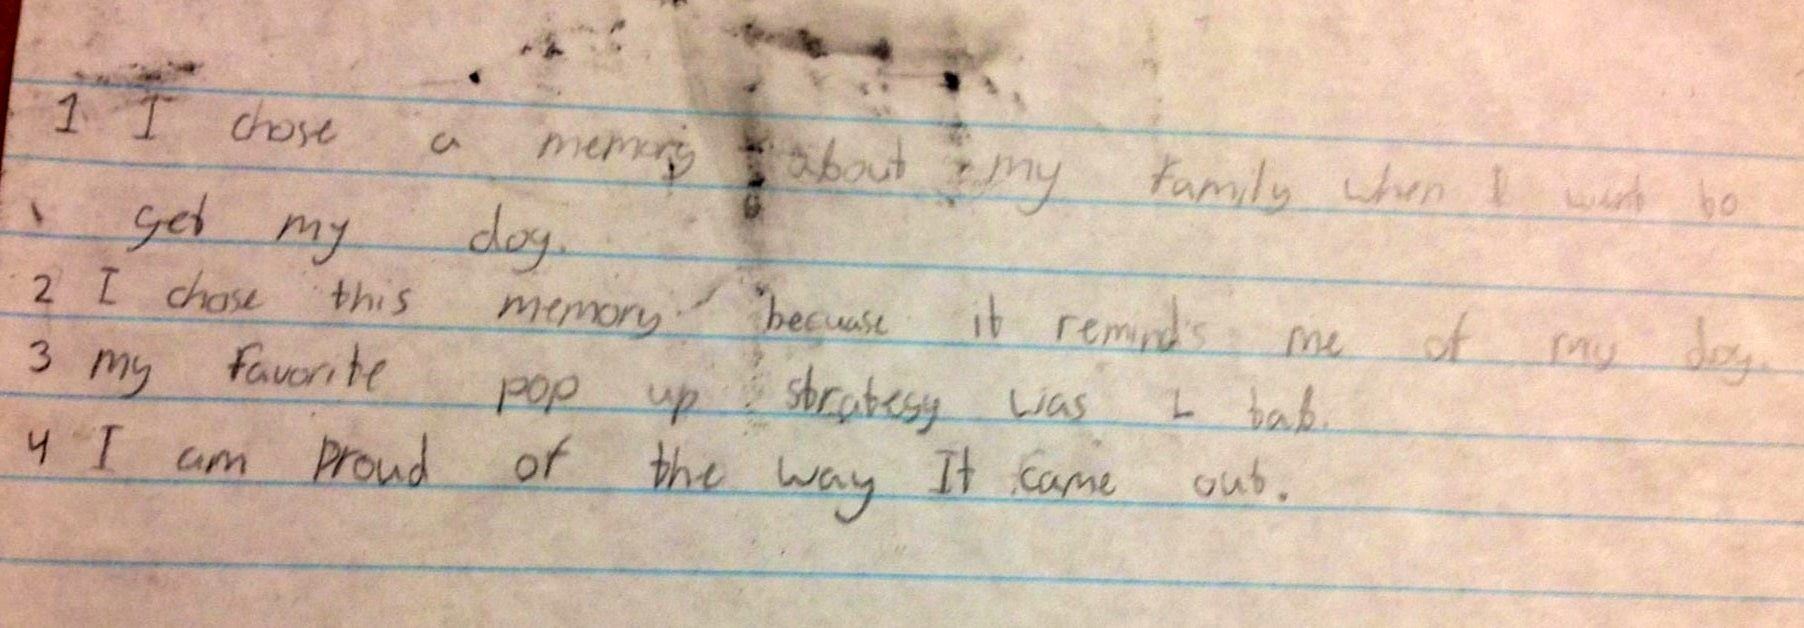 1 I chose a memory about my family when I went to
get my dog.
2 I chose this memory becuase it reminds me of my dog.
3 my favorite pop up strategy was L tab.
4 I am proud of the way It came out.